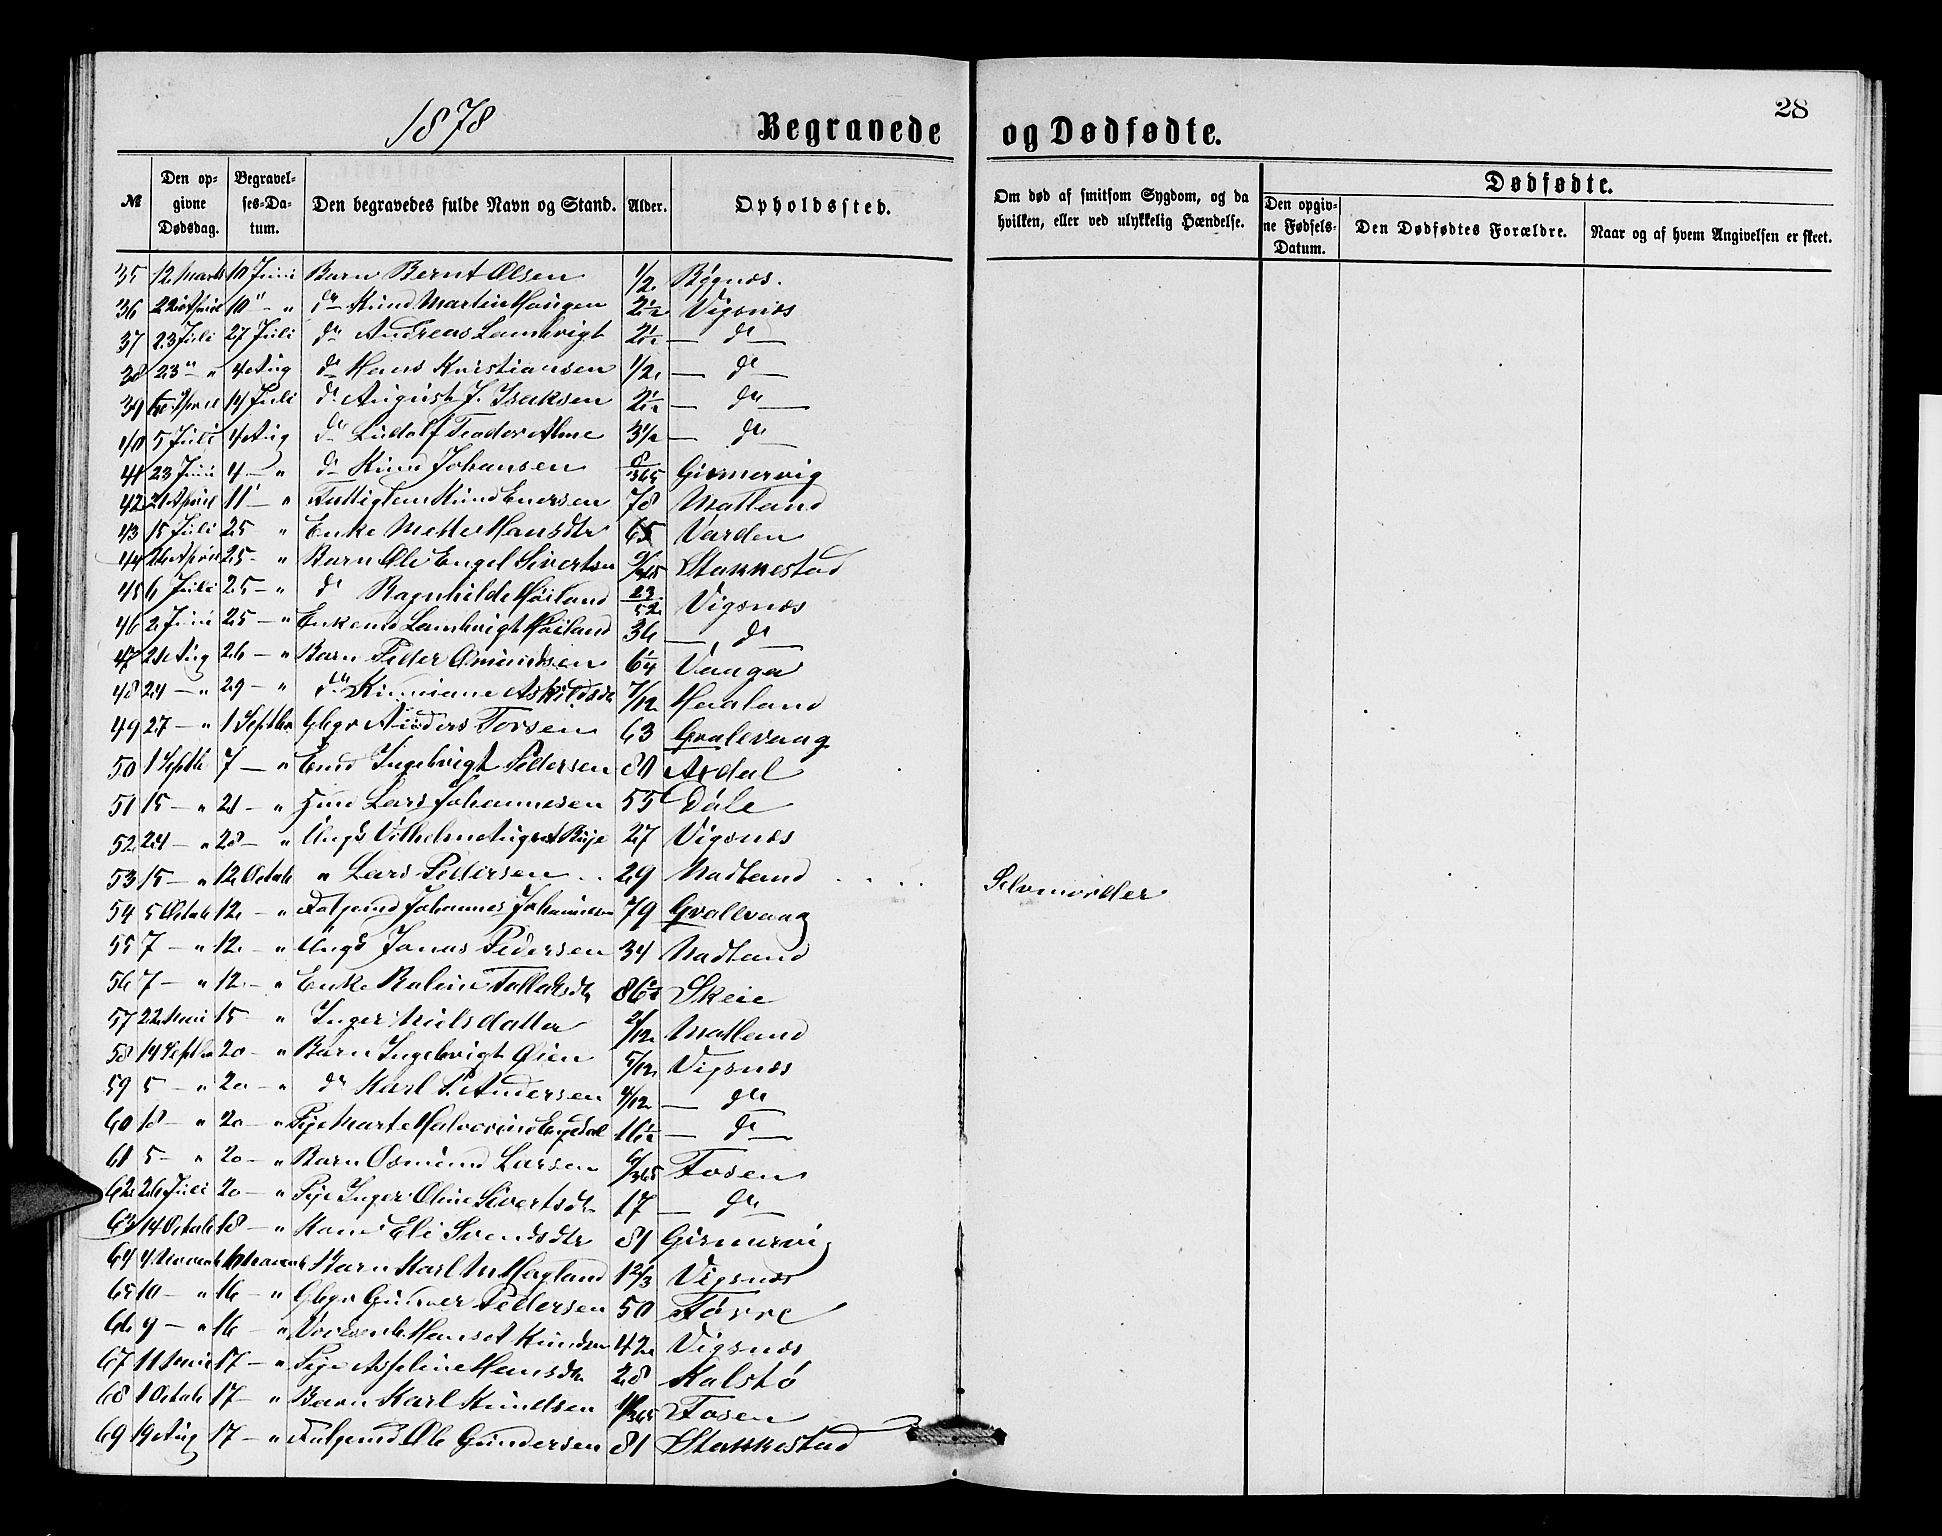 1878
28
Begravede og Dødfødte.
№
Den opgivne Dødsdag.
Begravelses-Datum.
Den begravedes fulde Navn og Stand.
Alder.
Opholdssted.
Om død af smitsom Sygdom, og da hvilken, eller ved ulykkelig Hændelse.
Dødfødte.
Den opgivne Fødsels-Datum.
Den Dødfødtes Forældre.
Naar og af hvem Angivelsen er skeet.
35 12 Marts 10 Juni Barn Bernt Olsen 1/2 Bygnæs.
36 22 April 10 " - " do Knud Martin Haugen 2 1/2 Vigsnæs
37 23 Juli 27 Juli do Andreas Lambrigt 2 1/2 — do —
38 23 " " 4 Aug do Hans Kristiansen 1/2 — do —
39 April 14 Juli do August J. Isaksen 2 1/2 — do —
40 5 Juli 4 Aug do Ludolf Teodor Alme 3 1/2 — do —
41 23 Juni 4 — " do Knud Johansen 8/365 Gismervig
42 21 April 11 " Knud Enersen 78 Matland
43 15 Juli 25 " Enke Mette Hansdtr 65 Varden
44 26 April 25 - " Barn Ole Engel Sivertsen Stakkestad
45 6 Juli 25 - " do Ragnhilde Høiland 23/52 Vigsnæs
46 2 Juni 25 - " Enkemd Lambrigt Høiland 36 — do —
47 21 Aug 26 - " Barn Peder Osmundsen 6 1/4 Vaaga
48 24 — " 29 - " do Askildsdtr 7/12 Haaland
49 27 - " 1 Septbr Gbgr Anders Torsen 63 Gvalevaag
50 1 Septb 7 — " Emd Ingebrigt Pedersen 80 Ardal
51 15 — " 21 — " Hmd Lars Johannesen 55 Dale
52 24 — " 28 - " Ungk Vilhelm August 27 Vigsnæs
53 15 — " 12 Octob " Lars Pedersen 29 Nadland Selvmorder
54 5 Octob 12 — " Johannes Johannesen 79 Gvallevaag
55 7 — " 12 — " Ungk Jonas Pedersen 34 Nadland
56 7 — " 12 — " Enke Malene Tollaksdtr 86 1/2 Skeie
57 22 15 - " Inger Nielsdatter 2/12 Matland
58 14 Septbr 20 — " Barn Ingebrigt Øien 5/12 Vigsnæs
59 5 — " 20 — " do Karl P. Andersen 4/12 — do —
60 18 — " 20 — " Pige Marte Halvorine 16 1/2 — do —
61 5 — " 20 — " Barn Osmund Larsen 6/365 Fosen
62 26 Juli 20 — " Pige Inger Oline Sivertsdtr 17 — do —
63 14 Octob 18 — " Kone Eli Svendsdtr 81 Gismervig
64 4 Novemb Novemb Barn Karl M Hagland 1 2/3 Vigsnæs
65 10 — " 16 — " Gbgr Gunner Pedersen 50 Førre
66 9 — " 16 — " Hans A Knudsen 42 Vigsnæs
67 11 17 — " Pige Asseline Hansdtr 28 Kalstø
68 1 Octob 17 — " Barn Karl Knudsen Fosen
69 19 Aug 17 — " Ole Gundersen 81 Stakkestad